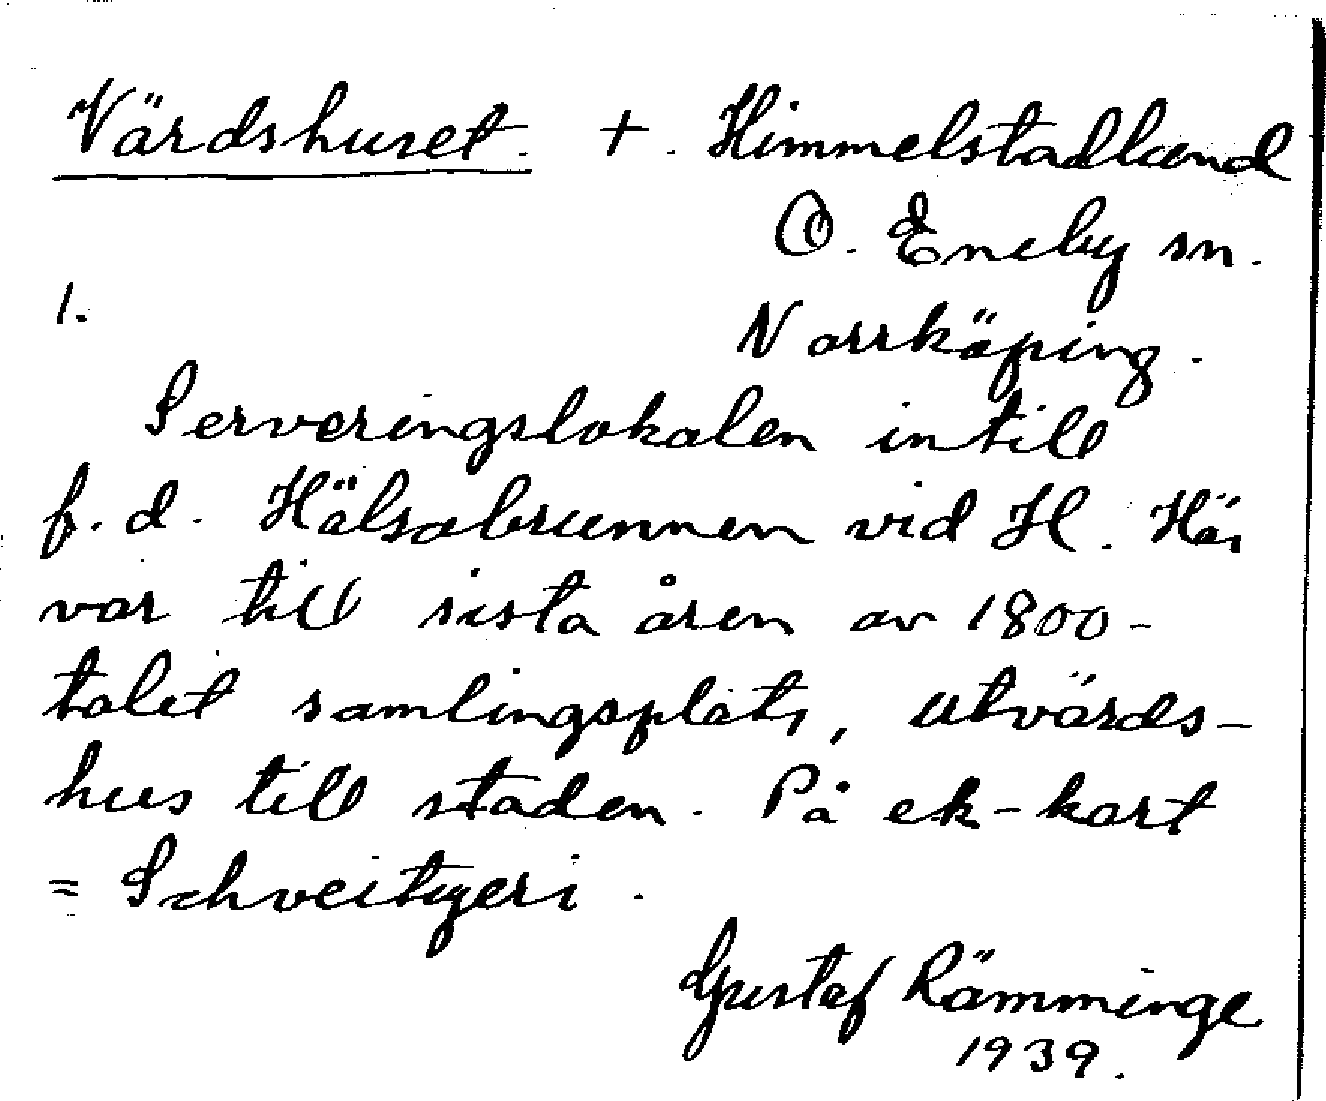 Värdshuset. +. Himmelstadlund
Ö. Eneby sn.
1.
Norrköping.
Serveringslokalen intill
f.d. Hälsobrunnen vid H. Här
var till sista åren av 1800-
talet samlingsplats, utvärds-
hus till staden. På ek-kart
= Schveitzeri.
Gustaf Rämminge
1939.